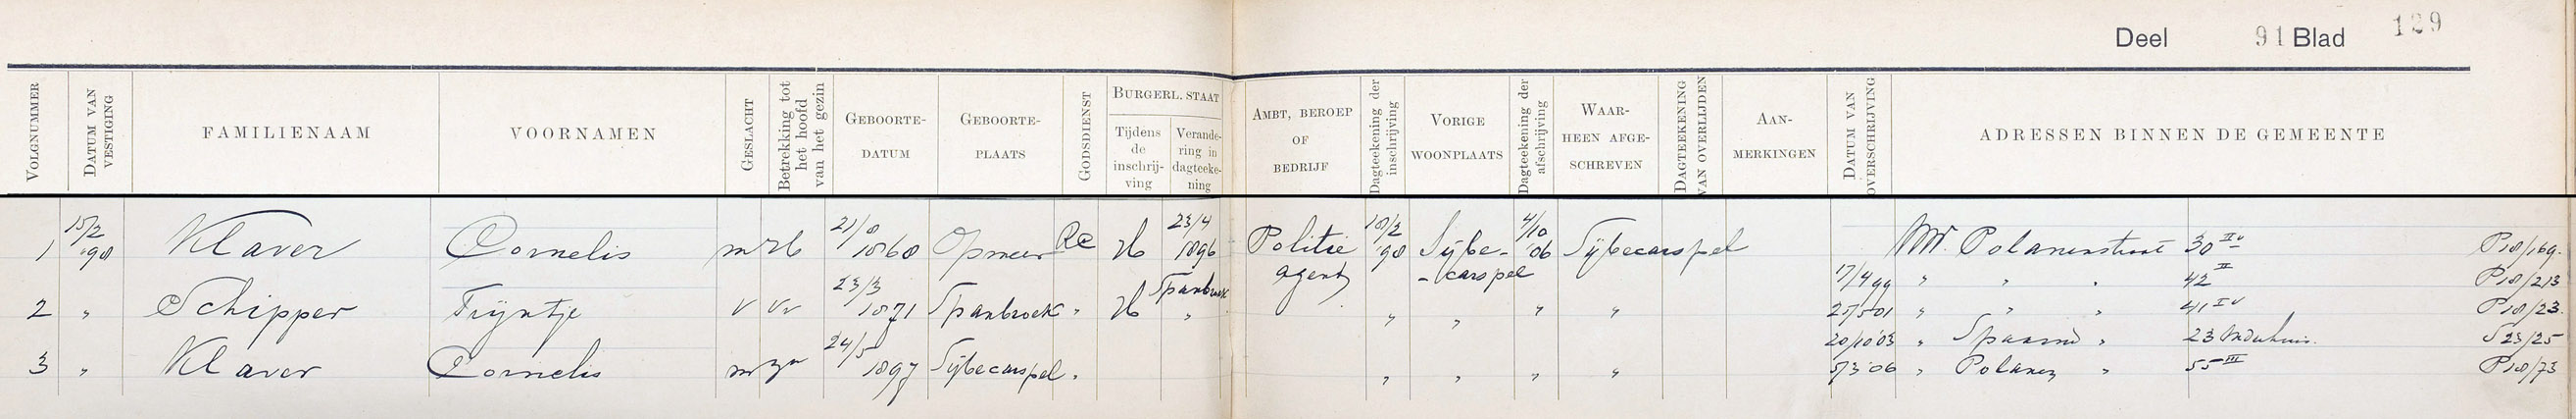 Deel 91 Blad 129
VOLGNUMMER
DATUM VAN VESTIGING
FAMILIENAAM
VOORNAMEN
GESLACHT
Betrekking tot het hoofd van het gezin
GEBOORTE-DATUM
GEBOORTE-PLAATS
GODSDIENST
BURGERL. STAAT
Tijdens de inschrij-ving
Verande-ring in dagteeke-ning
AMBT, BEROEP OF BEDRIJF
Dagteekening der inschrijving
VORIGE WOONPLAATS
Dagteekening der afschrijving
WAAR-HEEN AFGE-SCHREVEN
DAGTEEKENING VAN OVERLIJDEN
AAN-MERKINGEN
DATUM VAN OVERSCHRIJVING
ADRESSEN BINNEN DE GEMEENTE
1 15/2 '98 Klaver Cornelis m 21/8 1868 Opmeer RC H 23/4 1896 Politie 18/2 '98 Sijbe- 4/10 06 Sijbecarspel Polanenstraat 30 P18/169.
agent -carspel 17/4 99 " " " 42 II P18/213
2 " Schipper Trijntje v vr 23/3 1871 Spanbroek " H Spanbroek " " " " " 25/5 01 " " " 41 IV P18/23.
20/10 03 " Spaarnd " 23 Onderhuis. S23/25
3 " Klaver Cornelis m zn 24/5 1897 Sijbecarspel " " " " " 5/3 06 " Polanen " 55 III P18/73